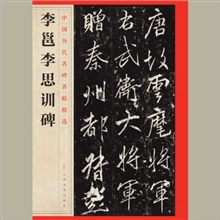 中国历代名碑名帖精选
李邕李思训碑
唐故雲麾將軍
右武衛大將軍
贈秦州都督